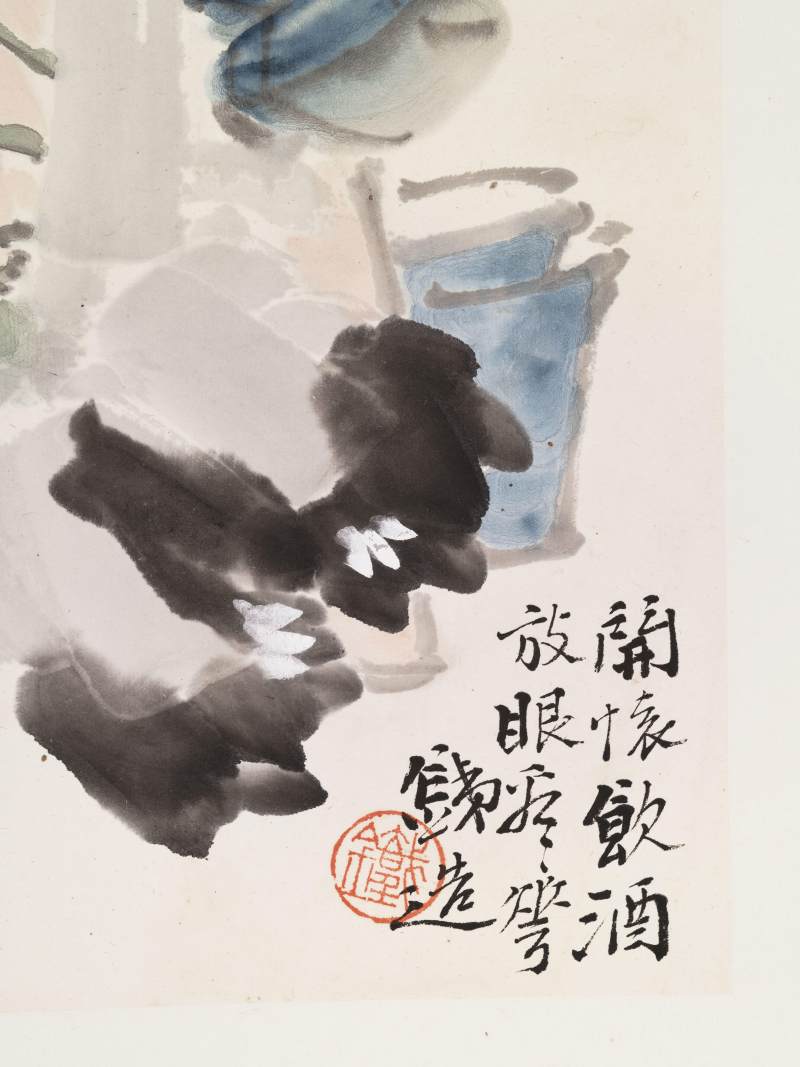 開懷飲酒
放眼看花
造